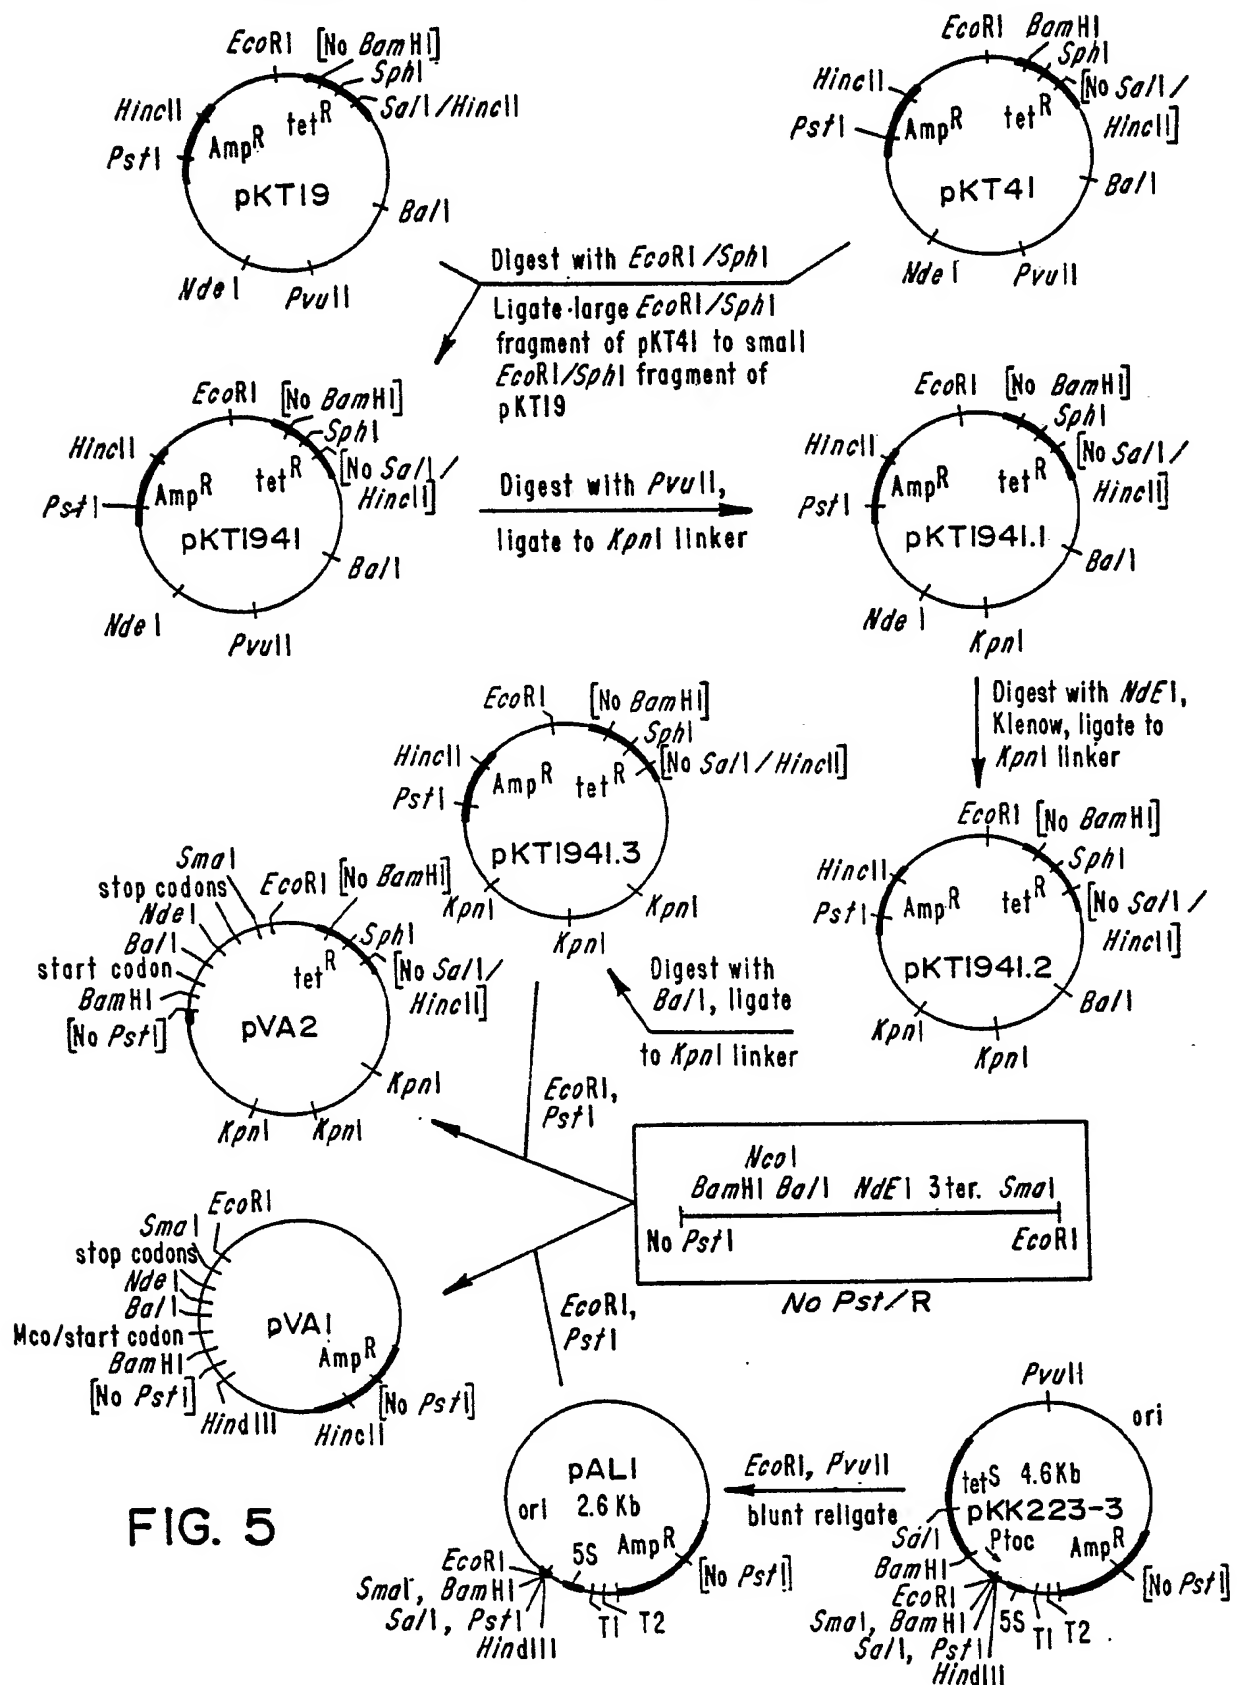 EcoRI [No BamHI]
SphI
HincII
SalI/HincII
tetR
AmpR
PstI
pKT19
BalI
NdeI
PvuII
EcoRI BamHI
SphI
HincII
[No SalI/
HincII]
tetR
PstI
AmpR
pKT41
BalI
NdeI
PvuII
Digest with EcoRI/SphI
Ligate large EcoRI/SphI
fragment of pKT41 to small
EcoRI/SphI fragment of
pKT19
EcoRI [No BamHI]
SphI
HincII
tetR
[No SalI/
HincII]
PstI
AmpR
pKT1941
BalI
NdeI
PvuII
Digest with PvuII,
ligate to KpnI linker
EcoRI [No BamHI]
SphI
HincII
tetR
[No SalI/
HincII]
PstI
AmpR
pKT1941.1
BalI
NdeI
KpnI
Digest with NdEI,
Klenow, ligate to
KpnI linker
EcoRI [No BamHI]
SphI
HincII
tetR
[No SalI/
HincII]
PstI
AmpR
pKT1941.2
BalI
KpnI
KpnI
Digest with
BalI, ligate
to KpnI linker
EcoRI [No BamHI]
SphI
HincII
[No SalI/HincII]
PstI
AmpR tetR
pKT1941.3
KpnI
KpnI
KpnI
SmaI
stop codons
EcoRI [No BamHI]
NdeI
BalI
SphI
start codon
tetR
[No SalI/
HincII]
BamHI
[No PstI]
pVA2
KpnI
KpnI
KpnI
EcoRI,
PstI
NcoI
BamHI BalI NdEI 3ter. SmaI
No PstI
EcoRI
No Pst/R
EcoRI
SmaI
stop codons
NdeI
BalI
Mco/start codon
BamHI
[No PstI]
HindIII
pVA1
AmpR
[No PstI]
HincII
EcoRI,
PstI
pAL1
ori 2.6 Kb
AmpR
5S
[No PstI]
EcoRI
SmaI, BamHI
SalI, PstI
HindIII
T1 T2
EcoRI, PvuII
blunt religate
PvuII
ori
tetS 4.6Kb
pKK223-3
SalI
Ptoc
AmpR
BamHI
[No PstI]
EcoRI
SmaI, BamHI
SalI, PstI
HindIII
5S T1 T2
FIG. 5